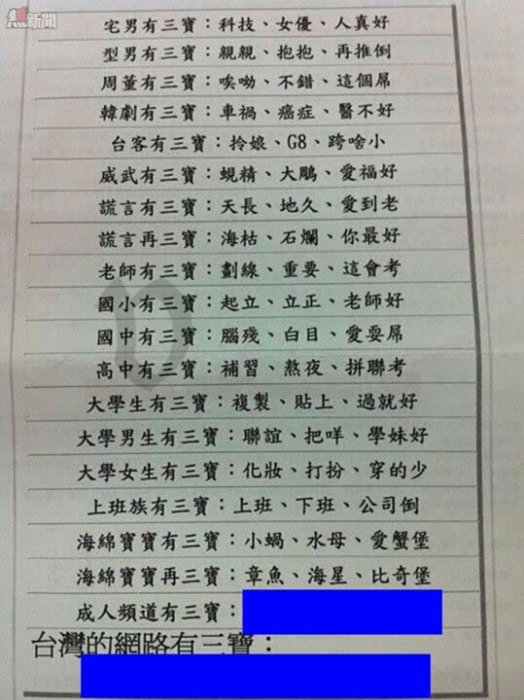 焦新聞
宅男有三寶：科技、女優、人真好
型男有三寶：親親、抱抱、再推倒
周董有三寶：唉呦、不錯、這個屌
韓劇有三寶：車禍、癌症、醫不好
台客有三寶：拎娘、G8、跨啥小
威武有三寶：蜆精、大鵰、愛福好
謊言有三寶：天長、地久、愛到老
謊言再三寶：海枯、石爛、你最好
老師有三寶：劃線、重要、這會考
國小有三寶：起立、立正、老師好
國中有三寶：腦殘、白目、愛耍屌
高中有三寶：補習、熬夜、拼聯考
大學生有三寶：複製、貼上、過就好
大學男生有三寶：聯誼、把咩、學妹好
大學女生有三寶：化妝、打扮、穿的少
上班族有三寶：上班、下班、公司倒
海綿寶寶有三寶：小蝸、水母、愛蟹堡
海綿寶寶再三寶：章魚、海星、比奇堡
成人頻道有三寶：
台灣的網路有三寶：